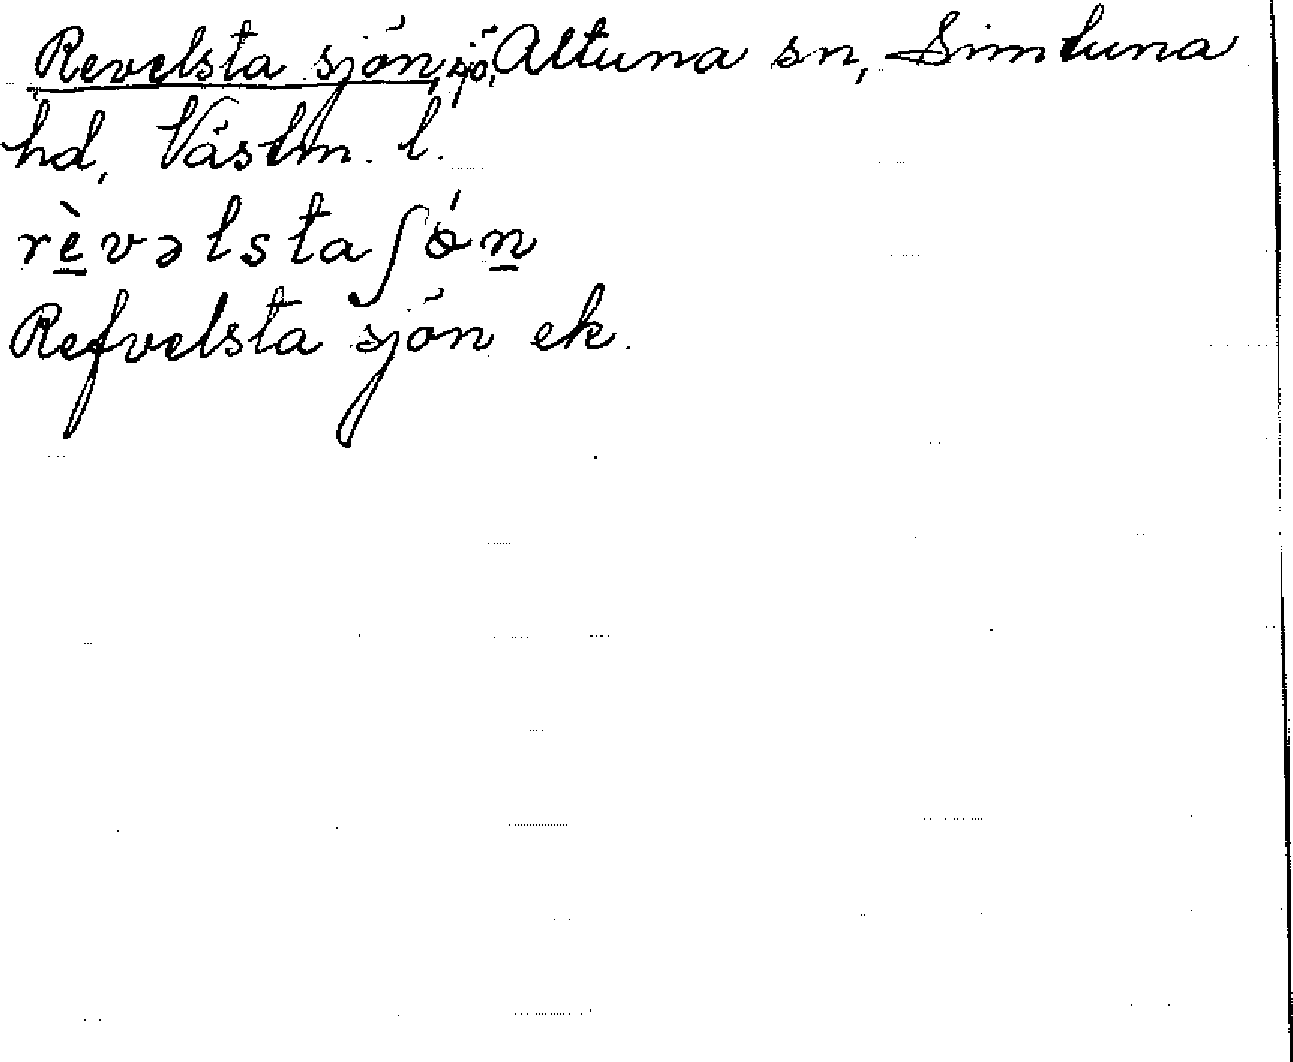 Revelsta sjön, sjö, Altuna sn, Simtuna
hd, Västm. l.
rè̱vəlstaʃǿṉ
Refvelsta sjön ek.